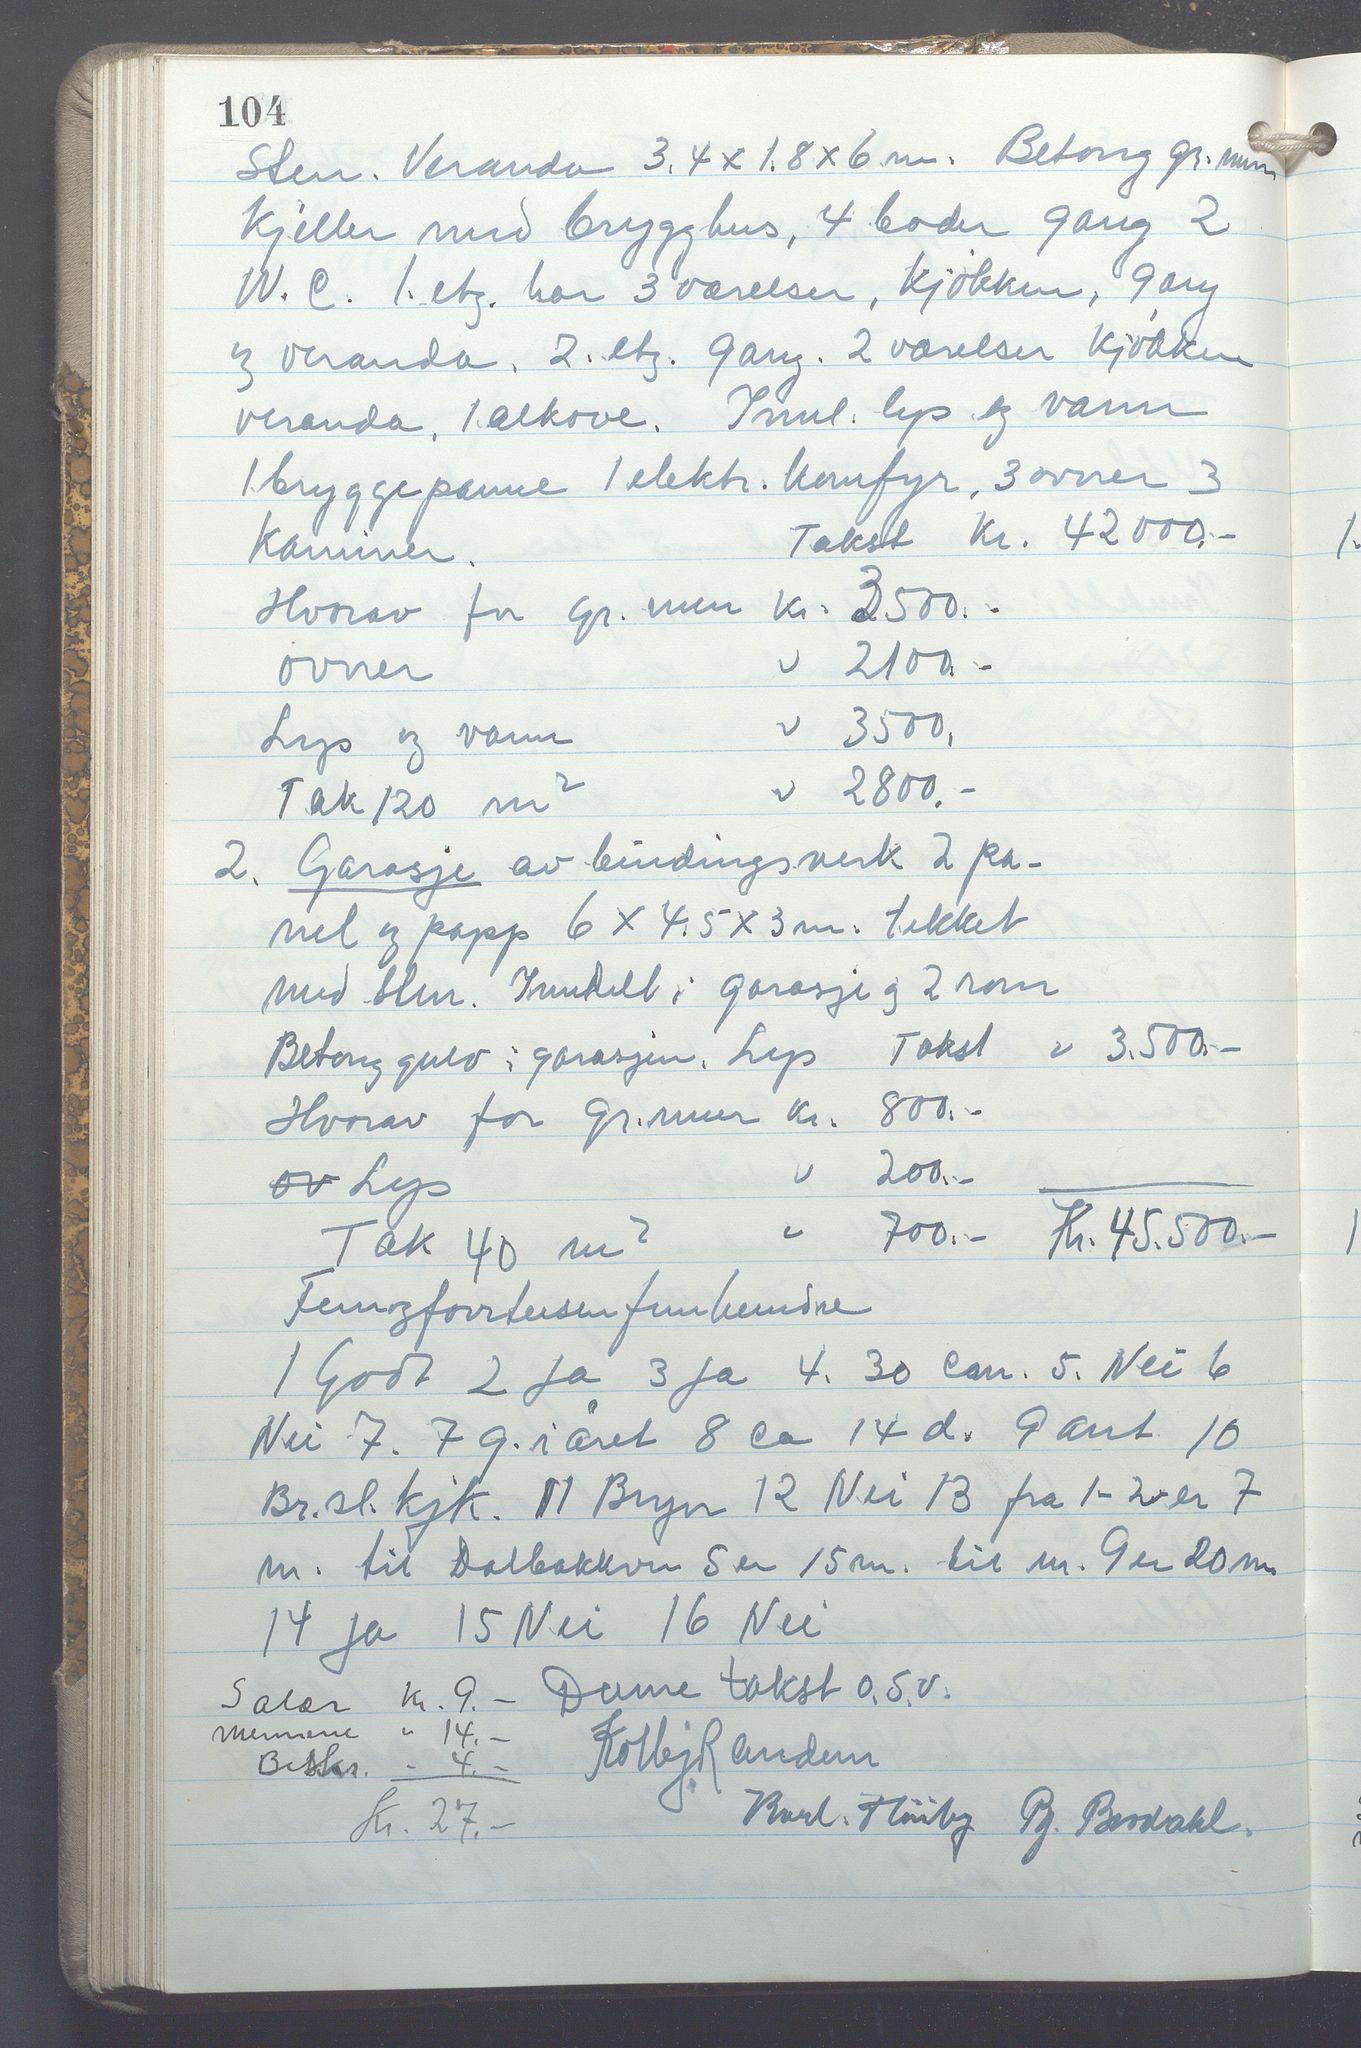 104
Sten. Veranda 3.4 x 1.8 x 6 m. Betong gr. mur
Kjeller med brygghus, 4 boder gang 2
W. C. 1. etg. har 3 værelser, kjøkken, gang
og veranda. 2. etg. gang. 2 værelser kjøkken
veranda, 1 alkove. Innl. lys og vann
1 bryggepanne 1 elektr. komfyr, 3 ovner 3
Kaminer. Takst Kr. 42000.-
Hvorav for gr. mur Kr. 3500.-
ovner " 2100.-
Lys og vann " 3500.
Tak 120 m² " 2800.-
2. Garasje av bindingsverk 2 pa-
nel og papp 6 x 4.5 x 3 m. tekket
med sten. Inndelt i garasje og 2 rom
Betong gulv i garasjen. Lys Takst " 3.500.-
Hvorav for gr. mur Kr. 800.-
ov Lys " 200.-
Tak 40 m² " 700.- Kr. 45.500.-
Femogførrtitusenfemhundre
1 Godt 2 ja 3 ja 4. 30 cm. 5. Nei 6
Nei 7. 7 g. i året 8 ca 14 d. 9 ant 10
Br. sl. kjk. 11 Bryn 12 Nei 13 fra 1-2 er 7
m. til Dalbakken 5 er 15 m. til nr. 9 er 20 m
14 ja 15 Nei 16 Nei
Salær Kr. 9.- Denne takst o.s.v.
Mennene " 14.-
Beskr. - 4.- Kolbj. Randem
Kr. 27.- Karl. Huiby Bj. Berdahl.